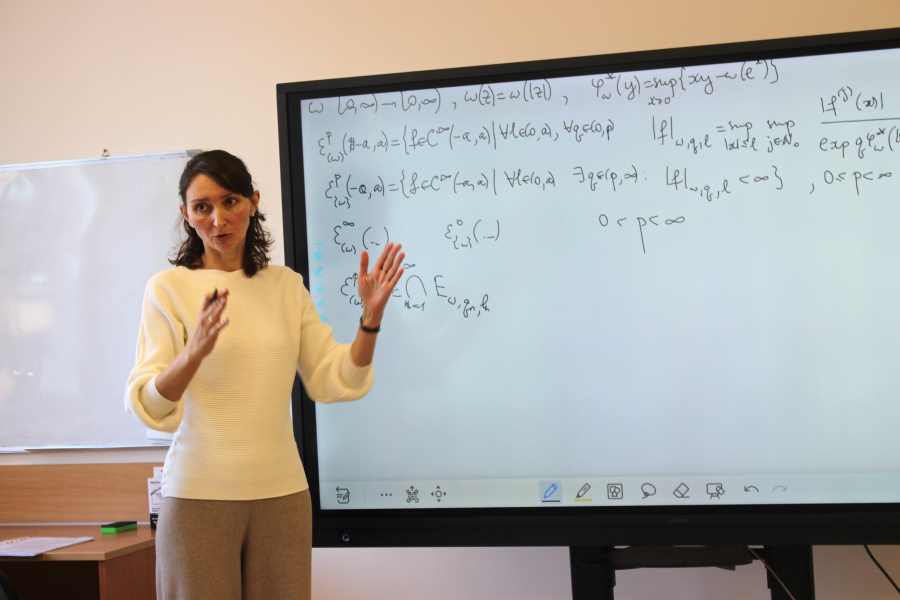 ω: [0,∞) → [0,∞), ω(z) = ω(|z|), φ*_ω(y) = sup_{x>0} {xy - ω(e^x)}
ℰ^p_{(ω)}(-a,a) = {f ∈ C^∞(-a,a) | ∀l∈(0,a), ∀q∈(0,p) |f|_{ω,q,l} = sup_{|x|≤l} sup_{j∈ℕ₀} |f^{(j)}(x)| / exp qφ*_ω(
ℰ^p_{{ω}}(-a,a) = {f ∈ C^∞(-a,a) | ∀l∈(0,a) ∃q∈(p,∞): |f|_{ω,q,l} < ∞}, 0 < p < ∞
ℰ^∞_{(ω)}(...) ℰ^0_{{ω}}(...) 0 < p < ∞
ℰ^p_{(ω) = ⋂^∞_{n=1} E_{ω,q_n,l_n}